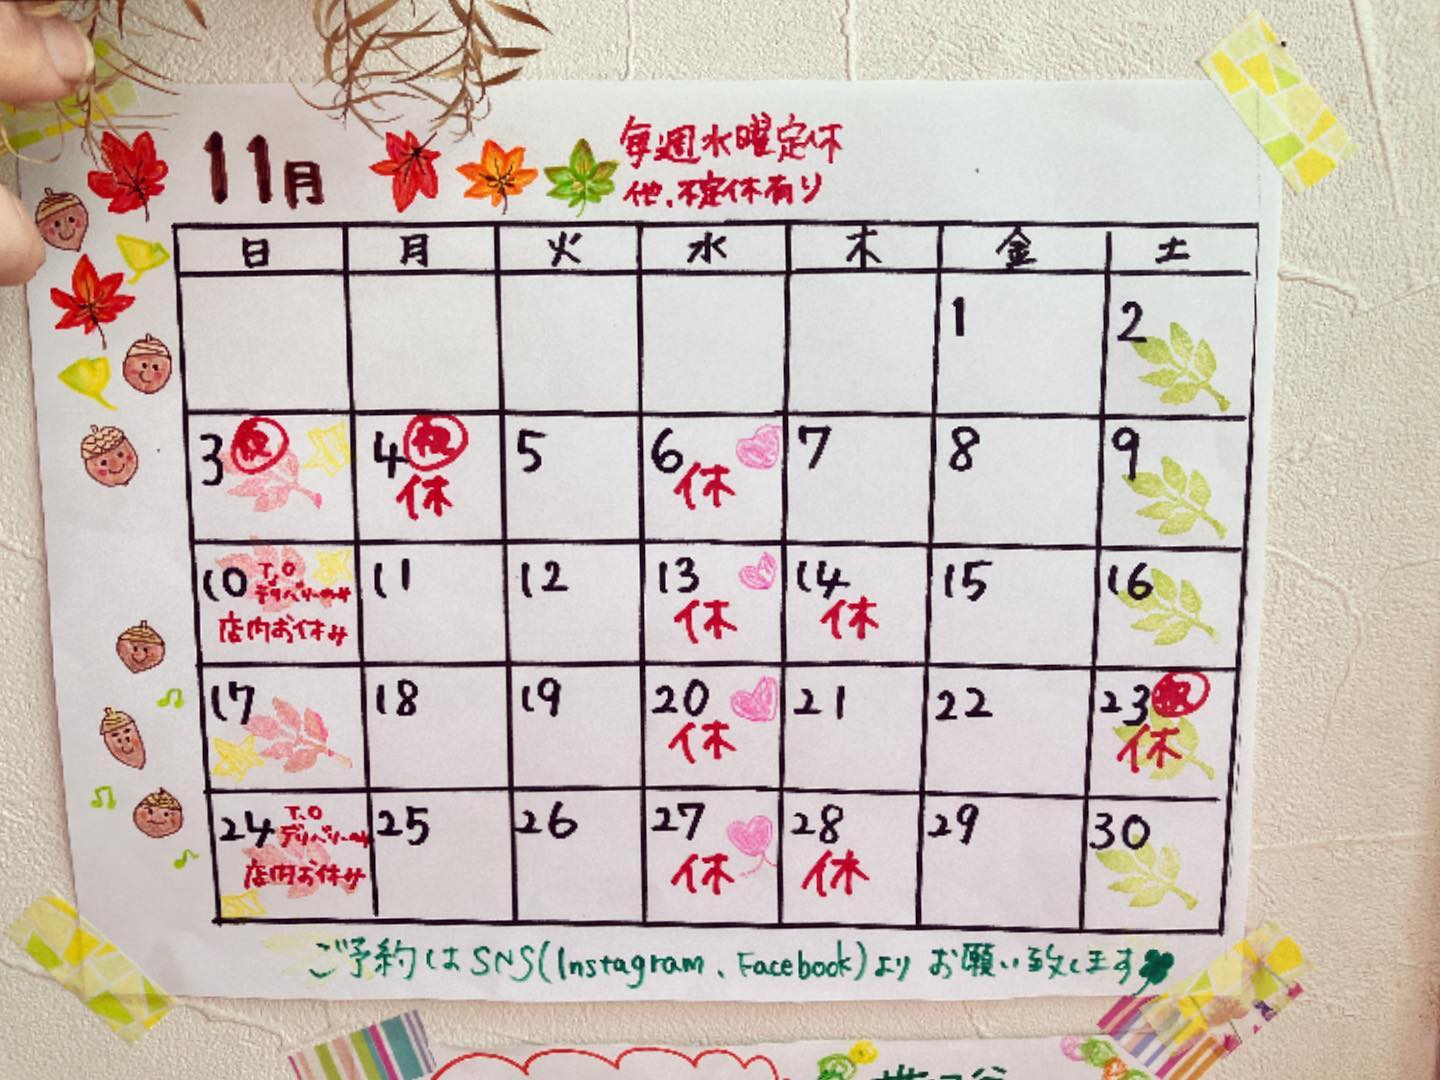 11月
毎週水曜定休
他、不定休有り
日 月 火 水 木 金 土
1 2
3 祝 4 祝 5 6 7 8 9
休 休
10 T.O 11 12 13 14 15 16
デリバリーのみ
店内お休み 休 休
17 18 19 20 21 22 23 祝
休 休
24 T.O 25 26 27 28 29 30
デリバリーのみ
店内お休み 休 休
ご予約はSNS(Instagram、Facebook)よりお願い致します